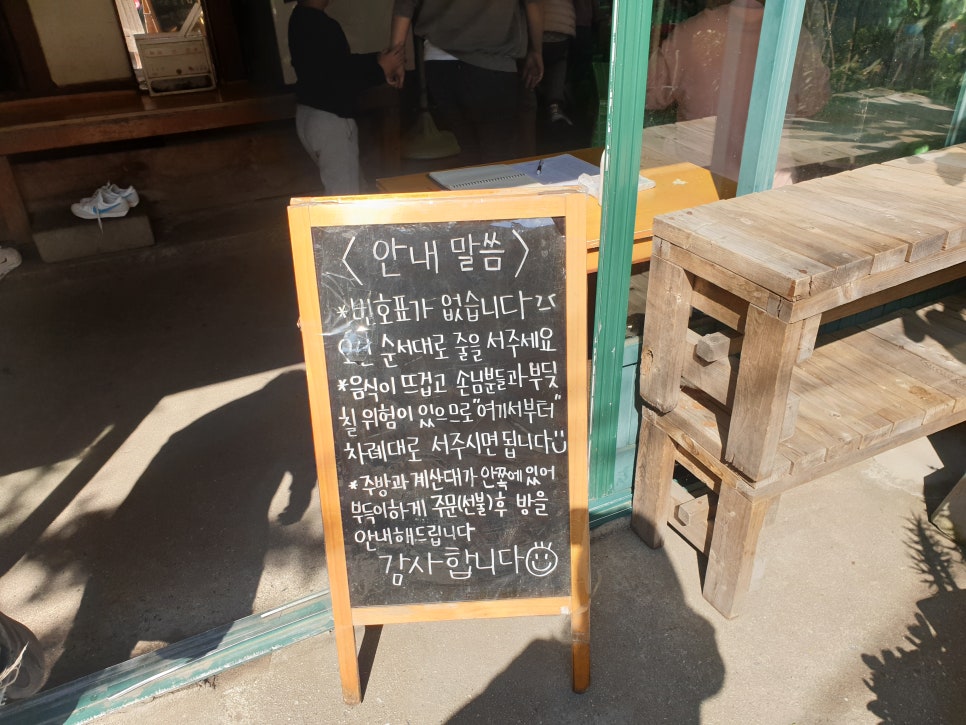 <안내 말씀>
*번호표가 없습니다
오신 순서대로 줄을 서주세요
*음식이 뜨겁고 손님분들과 부딪
칠 위험이 있으므로 "여기서부터"
차례대로 서주시면 됩니다
*주방과 계산대가 안쪽에 있어
부득이하게 주문(선불)후 방을
안내해드립니다
감사합니다